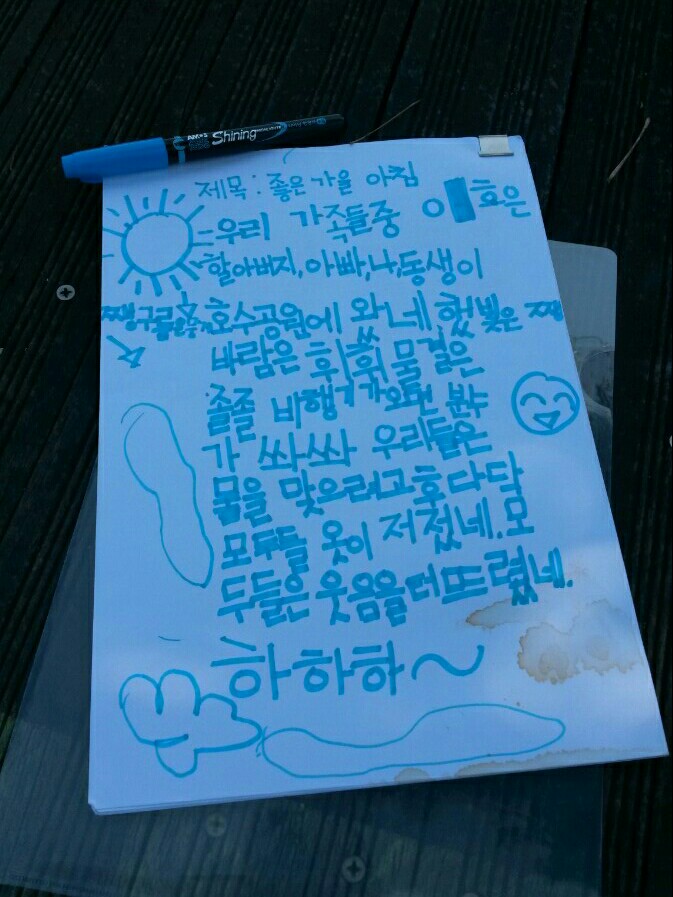 Shining
제목 : 좋은 가을 아침
우리 가족들중 이 효은
할아버지, 아빠, 나, 동생이
호수공원에 왔네. 햇빛은 쨍
쨍 구름은
바람은 휘휘 물결은
졸졸 비행기가 오면 분수
가 쏴쏴 우리들은
물을 맞으려고 후다닥
모두들 옷이 저졌네. 모
두들은 웃음을 터뜨렸네.
하하하~